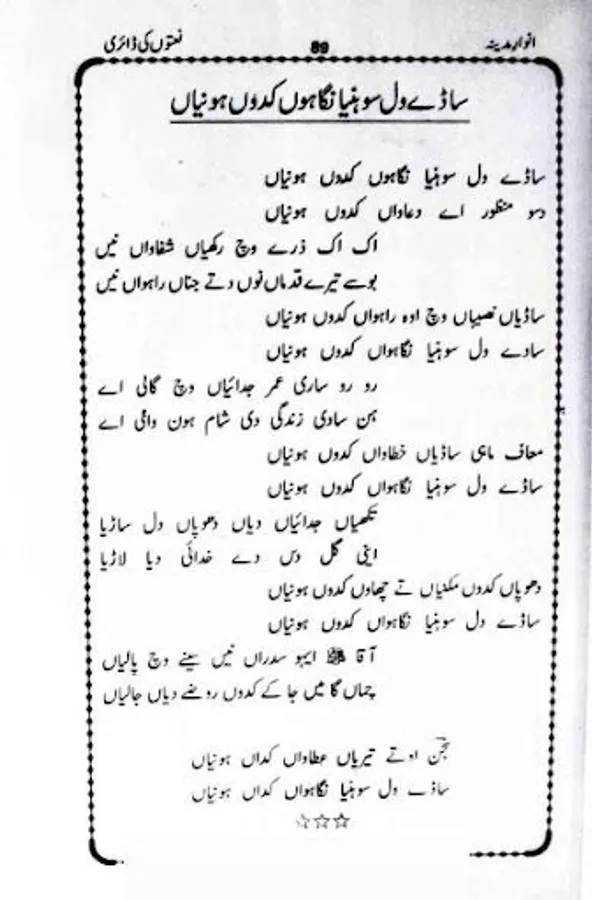 انوار مدینہ 89 نعتوں کی ڈائری
ساڈے ول سوہنیا نگاہوں کدوں ہونیاں
ساڈے ول سوہنیا نگاہوں کدوں ہونیاں
دسو منظور اے دعاواں کدوں ہونیاں
اک اک ذرے وچ رکھیاں شفاواں نیں
بوسے تیرے قدماں نوں دتے جناں راہواں نیں
ساڈیاں نصیباں وچ اوہ راہواں کدوں ہونیاں
سادے ول سوہنیا نگاہواں کدوں ہونیاں
رو رو ساری عمر جدائیاں وچ گالی اے
ہن سادی زندگی دی شام ہون والی اے
معاف ماہی ساڈیاں خطاواں کدوں ہونیاں
ساڈے ول سوہنیا نگاہواں کدوں ہونیاں
تکھیاں جدائیاں دیاں دھوپاں دل ساڑیا
اینی گل دس دے خدائی دیا لاڑیا
دھوپاں کدوں مکنیاں تے چھاوں کدوں ہونیاں
ساڈے ول سوہنیا نگاہواں کدوں ہونیاں
آقا ﷺ ایہو سدراں نیں سینے وچ پالیاں
چماں گا میں جا کے کدوں روضے دیاں جالیاں
اوتے تیریاں عطاواں کداں ہونیاں
ساڈے ول سوہنیا نگاہواں کداں ہونیاں
☆☆☆